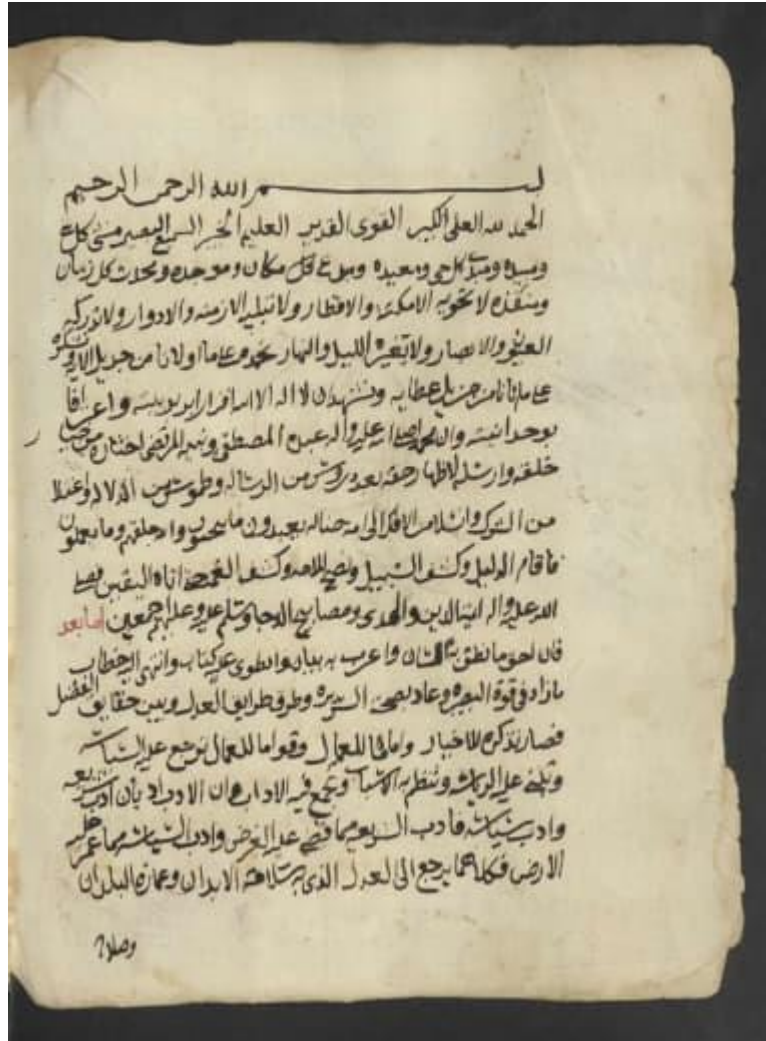 بسم الله الرحمن الرحيم
الحمد لله العلى الكبير القوى القدير العليم الخبير السميع البصير منشى كل
ومبيده كل حى ومعيده كل مكان وموجده ومحدث كل زمان
ومنفذه لا تحويه الامكنه والاقطار ولا تبليه الازمنه والادوار ولا تدركه
العيون والابصار ولا يغيره الليل والنهار نحمده على ما اولانا من جزيل
على ما اتانا من جزيل عطايه ونشهد ان لا اله الا الله اقرارا بربوبيته واعترافا
بوحدانيته وان محمدا صلى الله عليه واله عبده المصطفى ونبيه المرتضى اختاره من
خلقه وارسله لاظهار حقه بعد دروس من الرساله وطموس من الدلاله
من الشرك يعبدون ما ينحتون والله خلقهم وما يعملون
فاقام الدليل وكشف السبيل ونصح للامه وكشف الغمه حتى اتاه اليقين فصلى
الله عليه واله الدين والهدى ومصابيح الدجا وسلم عليه وعليهم اجمعين اما بعد
فان احق ما نطق به اللسان واعرب به بيان وانطوى عليه كتاب وانتهى اليه خطاب
ما زاد فى قوة البصيره وعاد بصحه السريره وطرق طرايق العدل وبين حقايق الفضل
فصار تذكره للاخيار وامانا للعمال وقواما للعمال ترجع عليه السياسه
وتبنى عليه الرياسه وتنظم به الاشيا وتجمع فيه الاداب وان الادب ادبان ادب شريعه
وادب سياسه فادب الشريعه ما قضى عليه الفرض وادب السياسه مما عمر عليه
الارض فكلاهما يرجع الى العدل الذى به سلامة الابدان وعمارة البلدان
وصلاح